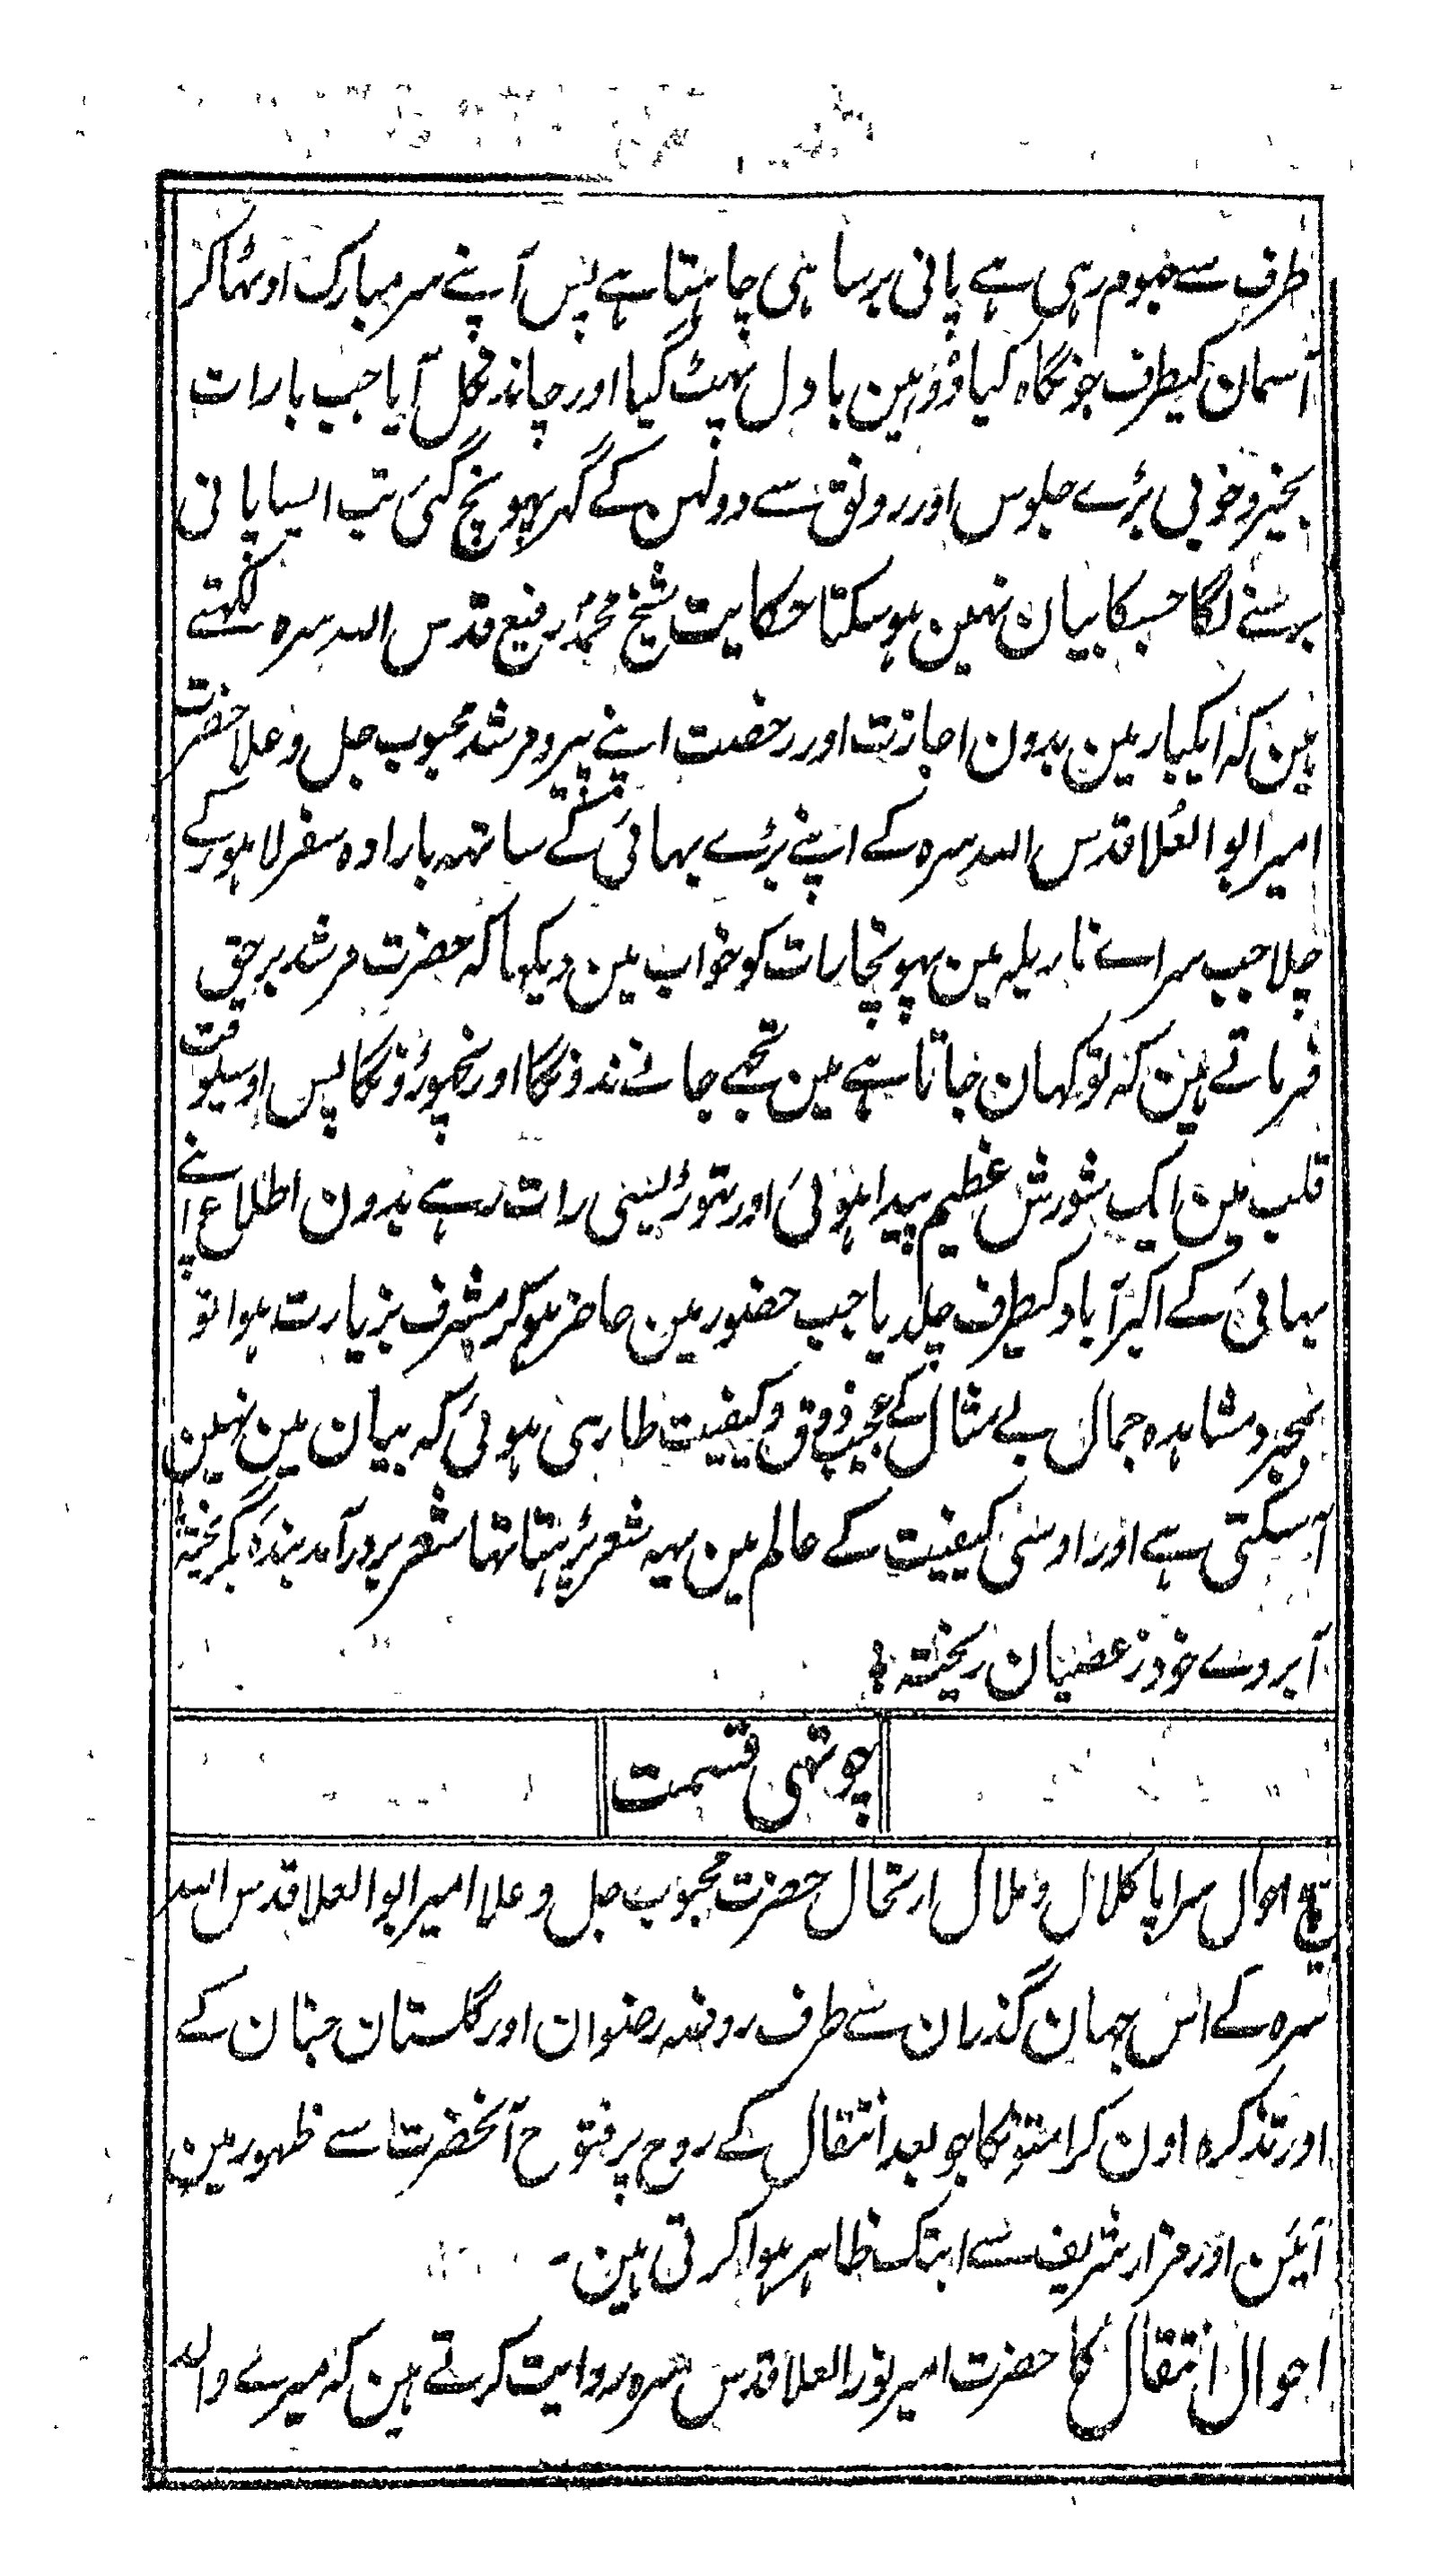 طرف سے جھوم رہی ہے پانی برسا ہی چاہتا ہے پس آپنے سر مبارک اوٹھا کر
آسمان کیطرف جو نگاہ کیا وونہین بادل پہٹ گیا اور چاند نکل آیا جب بارات
بخیر و خوبی بڑے جلوس اور رونق سے دولہن کے گہر پہونچ گئی تب ایسا پانی
برسنے لگا جسکا بیان نہین ہوسکتا حکایت شیخ محمد رفیع قدس اللہ سرہ لکہتے
ہین کہ ایکبار مین بدون اجازت اور رخصت اپنے پیر و مرشد محبوب جل و علا حضرت
امیر ابو العُلا قدس اللہ سرہ کے اپنے بڑے بہائی کے ساتہہ بارادہ سفر لاہور کے
چلا جب سراے ناریلہ مین پہونچا رات کو خواب مین دیکہا کہ حضرت مرشد برحق
فرماتے ہین کہ تو کہان جاتا ہے مین تجہے جانے ندونگا اور نچھوڑونگا پس اوسیوقت
قلب مین ایک شورش عظیم پیدا ہوئی اور تہوڑیسی رات رہے بدون اطلاع اپنے
بہائی کے اکبرآباد کیطرف چلدیا جب حضور مین حاضر ہوکر مشرف بزیارت ہوا تو
بمجرد مشاہدہ جمال بے مثال کے عجیب ذوق و کیفیت طاری ہوئی کہ بیان مین نہین
آسکتی ہے اور اوسی کیفیت کے عالم مین یہہ شعر پڑہتا تہا شعر بر در آمد بندۂ بگریختہ
آبروے خود ز عصیان ریختہ
چوتہی قسمت
بیچ احوال سراپا کلال و ملال ارتحال حضرت محبوب جل و علا امیر ابو العلا قدس اللہ
سرہ کے اس جہان گذران سے طرف روضہ رضوان اور گلستان جنان کے
اور تذکرہ اون کرامتونکا جو بعد انتقال کے روح پر فتوح آنحضرت سے ظہور مین
آئین اور مزار شریف سے ابتک ظاہر ہوا کرتی ہین۔
احوال انتقال کا حضرت امیر نور العلا قدس سرہ روایت کرتے ہین کہ میرے والد